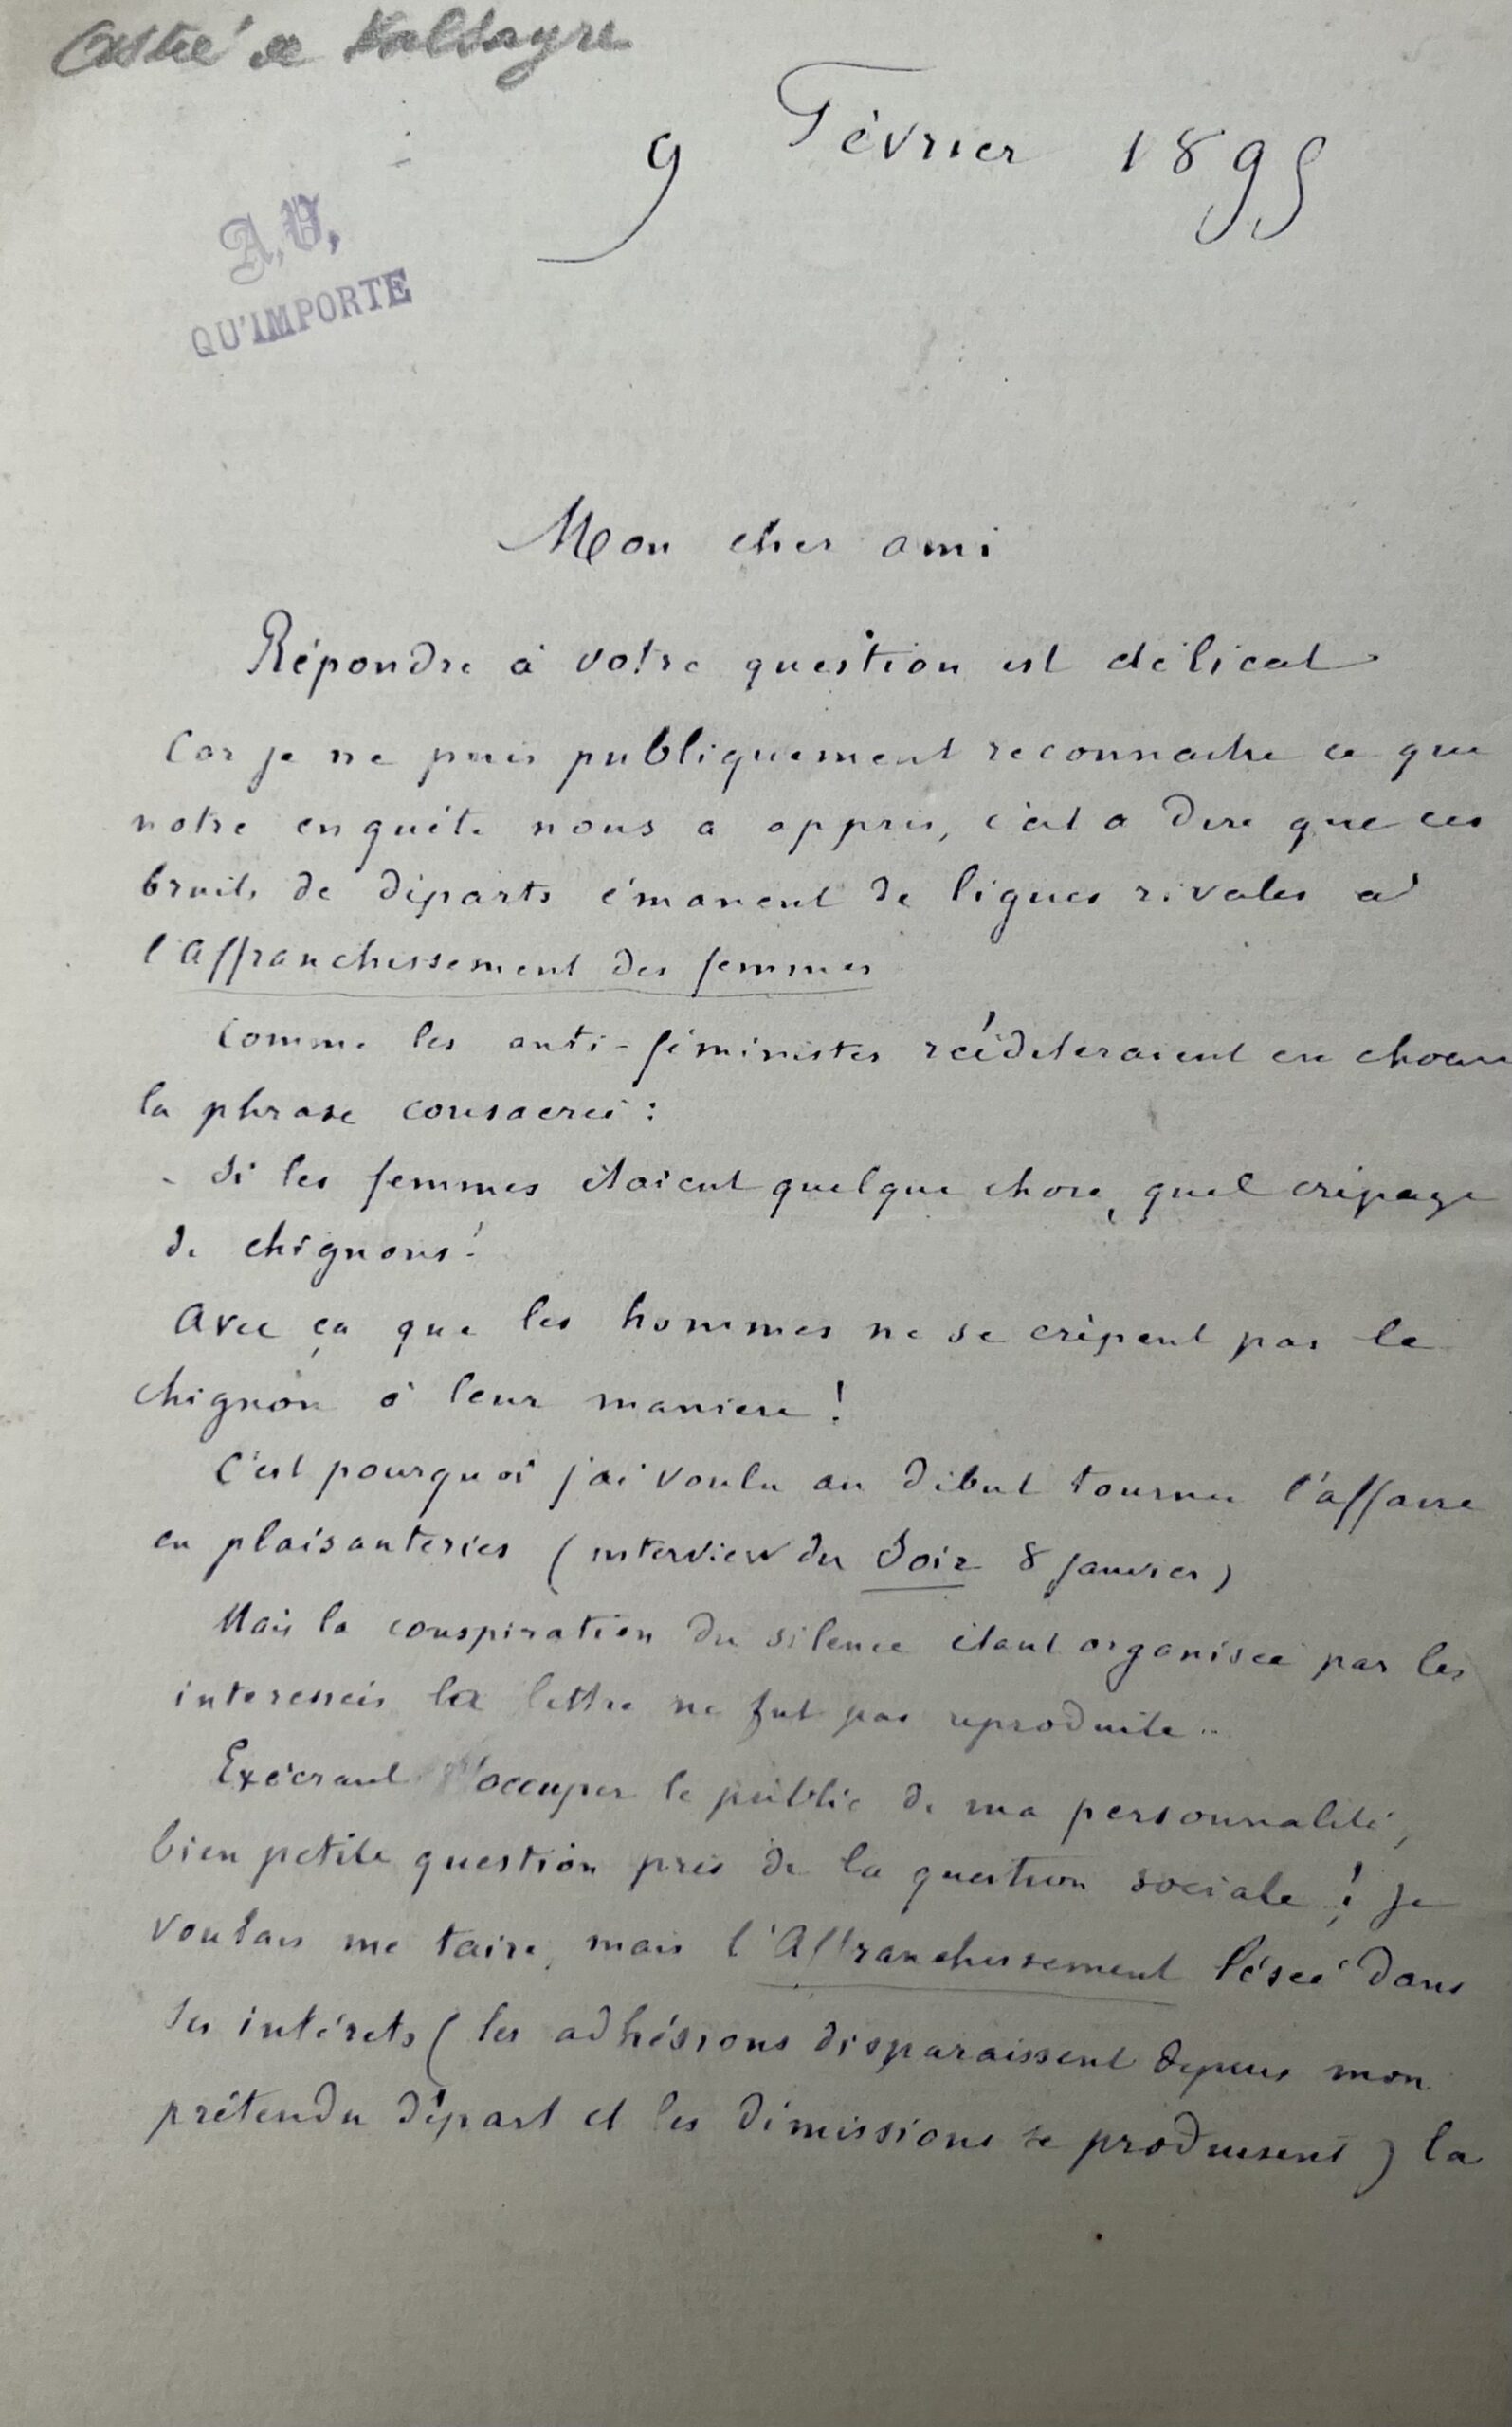 Astié de Valsayre
9 Février 1895
A, V,
QU'IMPORTE
Mon cher ami
Répondre à votre question est délicat
Car je ne puis publiquement reconnaitre ce que
notre enquête nous a appris, c'est a dire que ces
bruits de départs émanent de ligues rivales à
l'Affranchissement des femmes
Comme les anti-féministes rééditeraient en choeur
la phrase consacrée :
- Si les femmes étaient quelque chose, quel crêpage
de chignons !
Avec ça que les hommes ne se crêpent pas le
chignon à leur maniere !
C'est pourquoi j'ai voulu au début tourner l'affaire
en plaisanteries (interview du Soir 8 janvier)
Mais la conspiration du silence étant organisée par les
interessés la lettre ne fut pas reproduite..
Exécrant d'occuper le public de ma personnalité,
bien petite question près de la question sociale ! je
voulais me taire, mais l'Affranchissement lésée dans
ses intérets (les adhésions disparaissent depuis mon
prétendu départ et les démissions se produisent) la